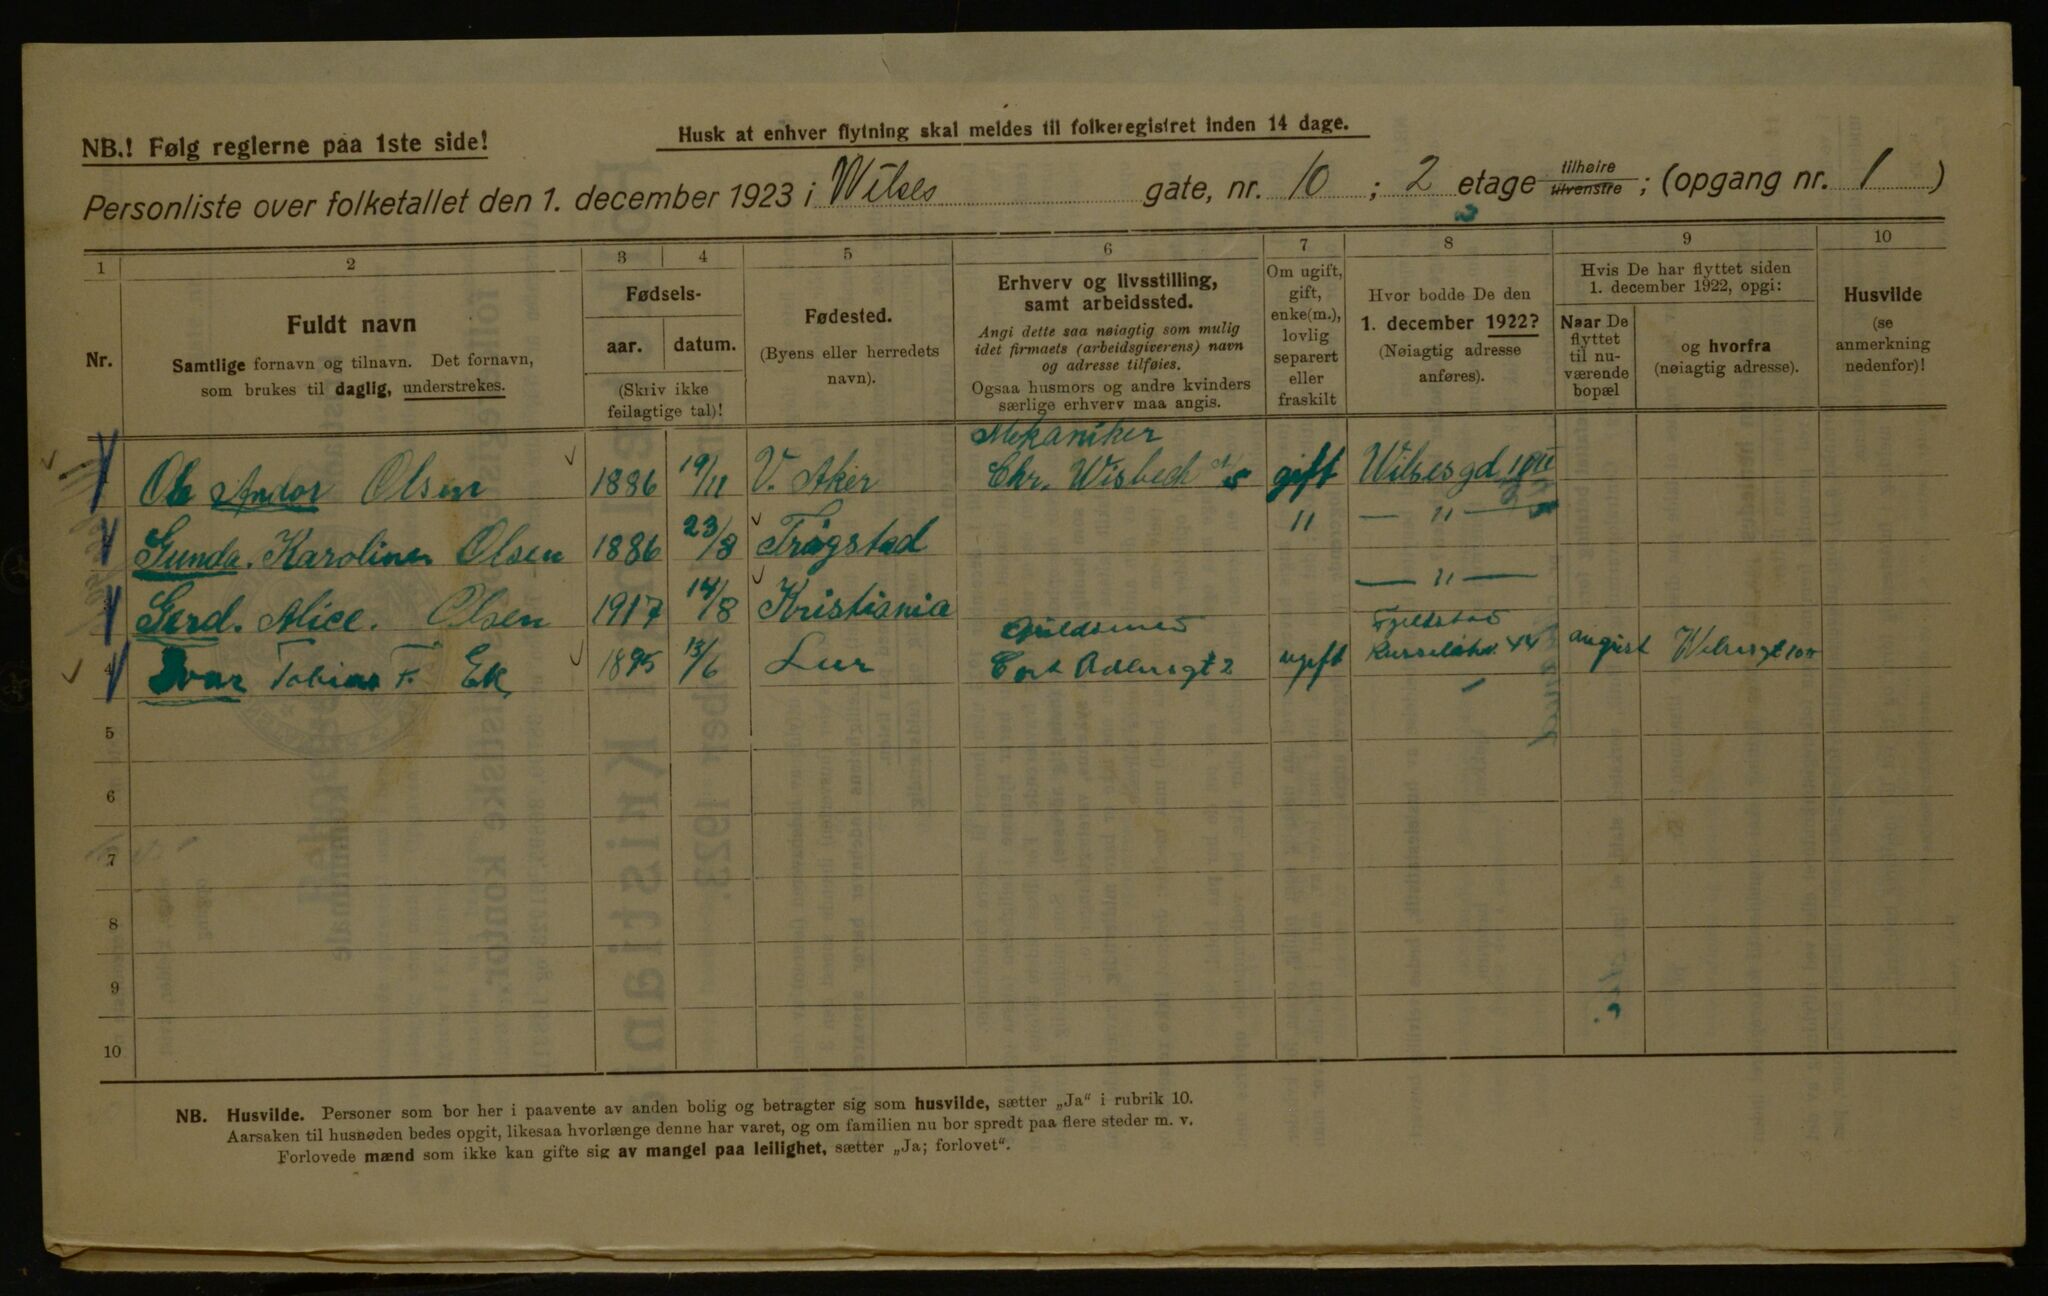 NB.! Følg reglerne paa 1ste side!
Husk at enhver flytning skal meldes til folkeregistret inden 14 dage.
Personliste over folketallet den 1. december 1923 i Wilses gate, nr. 10 ; 2 etage tilhøire tilvenstre ; (opgang nr. 1 )
1 2 3 4 5 6 7 8 9 10
Nr.
Fuldt navn
Samtlige fornavn og tilnavn. Det fornavn,
som brukes til daglig, understrekes.
Fødsels-
aar. datum.
(Skriv ikke
feilagtige tal)!
Fødested.
(Byens eller herredets
navn).
Erhverv og livsstilling,
samt arbeidssted.
Angi dette saa nøiagtig som mulig
idet firmaets (arbeidsgiverens) navn
og adresse tilføies.
Ogsaa husmors og andre kvinders
særlige erhverv maa angis.
Om ugift,
gift,
enke(m.),
lovlig
separert
eller
fraskilt
Hvor bodde De den
1. december 1922?
(Nøiagtig adresse
anføres).
Hvis De har flyttet siden
1. december 1922, opgi:
Naar De
flyttet
til nu-
værende
bopæl
og hvorfra
(nøiagtig adresse).
Husvilde
(se
anmerkning
nedenfor)!
Mekaniker
Ole Andor Olsen 1886 19/11 V. Aker Chr. Wisbech A/S gift Wilsesgd 10
Gunda. Karoline Olsen 1886 23/8 Trøgstad " — " —
Gerd. Alice. Olsen 1917 14/8 Kristiania — " —
Guldsmed
4 Ivar Tobias F. Ek 1895 13/6 Lur Cort Adlersgt 2 ugift 44 august Wilsesgt 10
5
6
7
8
9
10
NB. Husvilde. Personer som bor her i paavente av anden bolig og betragter sig som husvilde, sætter „Ja“ i rubrik 10.
Aarsaken til husnøden bedes opgit, likesaa hvorlænge denne har varet, og om familien nu bor spredt paa flere steder m. v.
Forlovede mænd som ikke kan gifte sig av mangel paa leilighet, sætter „Ja; forlovet“.